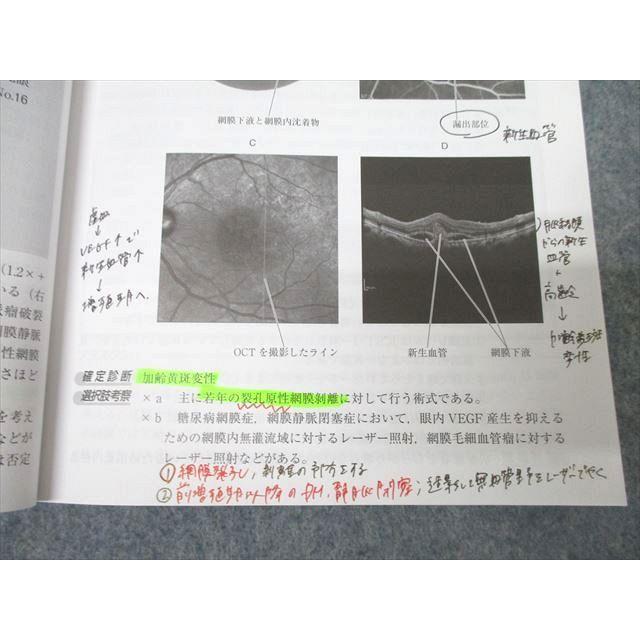 No.16
網膜下液と網膜内沈着物
漏出部位
新生血管
C
D
虚血
↓
VEGF↑で
新生血管↑
↓
増殖
脈絡膜
からの新生
血管
+
高齢
↓
加齢黄斑
変性
OCTを撮影したライン
新生血管
網膜下液
(1.2×+
いる(右
瘤破裂
膜静脈
性網膜
さほど
を考え
などが
は否定
確定診断 加齢黄斑変性
選択肢考察 ×a 主に若年の裂孔原性網膜剥離に対して行う術式である。
×b 糖尿病網膜症,網膜静脈閉塞症において,眼内VEGF産生を抑える
ための網膜内無灌流域に対するレーザー照射,網膜毛細血管瘤に対する
レーザー照射などがある。
① 網膜裂孔
② 前増殖期以降のDM,静脈閉塞;